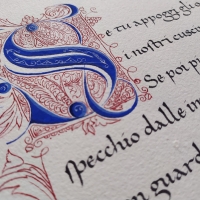 Se tu appoggi gli o
i nostri cusc
Se poi p
Specchio dalle im
n guard